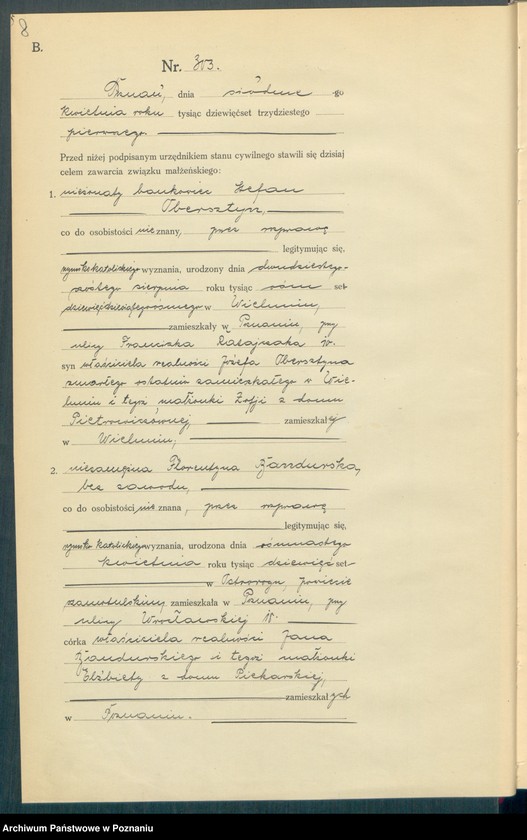 8
B.
Nr. 303.
Poznań, dnia siódme go
kwietnia roku tysiąc dziewięćset trzydziestego
pierwszego.
Przed niżej podpisanym urzędnikiem stanu cywilnego stawili się dzisiaj
celem zawarcia związku małżeńskiego:
1. nieżonaty bankowiec Stefan
Obersztyn,
co do osobistości nie znany, przez
legitymując się,
rzymsko katolickiego wyznania, urodzony dnia dwudziestego-
szóstego sierpnia roku tysiąc ośm set
dziewięćdziesiątegoósmego w Wieluniu,
zamieszkały w Poznaniu, przy
ulicy Franciszka Ratajczaka
syn właściciela realności Józefa Obersztyna
zmarłego ostatnio zamieszkałego w Wie-
luniu i tegoż małżonki Zofji z domu
Pietrowiczównej, zamieszkałej
w Wieluniu;
2. niezamężna Florentyna
bez zawodu,
co do osobistości nie znana, przez
legitymując się,
rzymsko katolickiego wyznania, urodzona dnia ośmnastego
kwietnia roku tysiąc dziewięć set
w Ostrorogu, powiecie
szamotulskim, zamieszkała w Poznaniu, przy
ulicy Wrocławskiej
córka właściciela realności Jana
i tegoż małżonki
Elżbiety z domu Piekarskiej,
zamieszkałych
w Poznaniu.
Archiwum Państwowe w Poznaniu